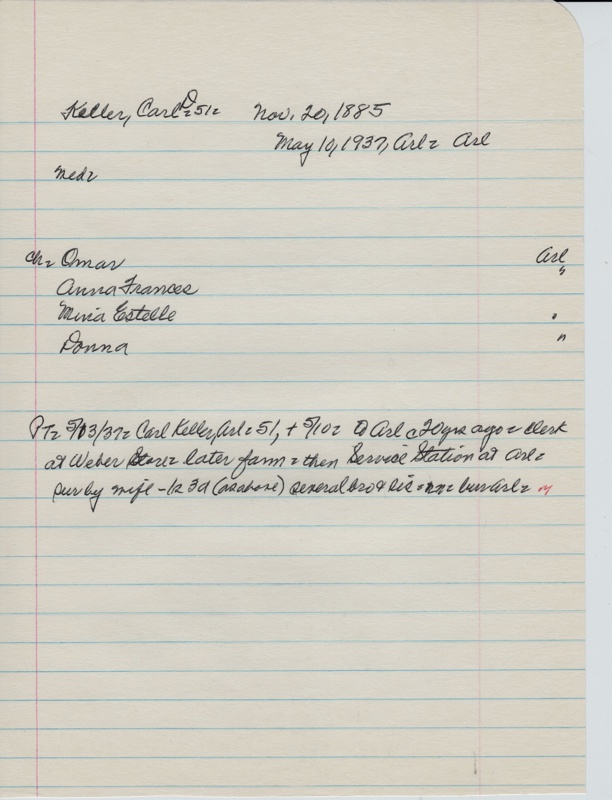 Keller, Carl D = 51 = Nov. 20, 1885
May 10, 1937, Arl = Arl
Med =
ch = Omar Arl
Anna Frances "
Mina Estelle "
Donna "
PT = 5/13/37 = Carl Keller, Arl = 51, + 5/10 = to Arl c 20 yrs ago = clerk
at Weber Store = later farm = then Service Station at Arl =
sur by wife - 1s 3d (as above) several bro & sis = nn = bur Arl =